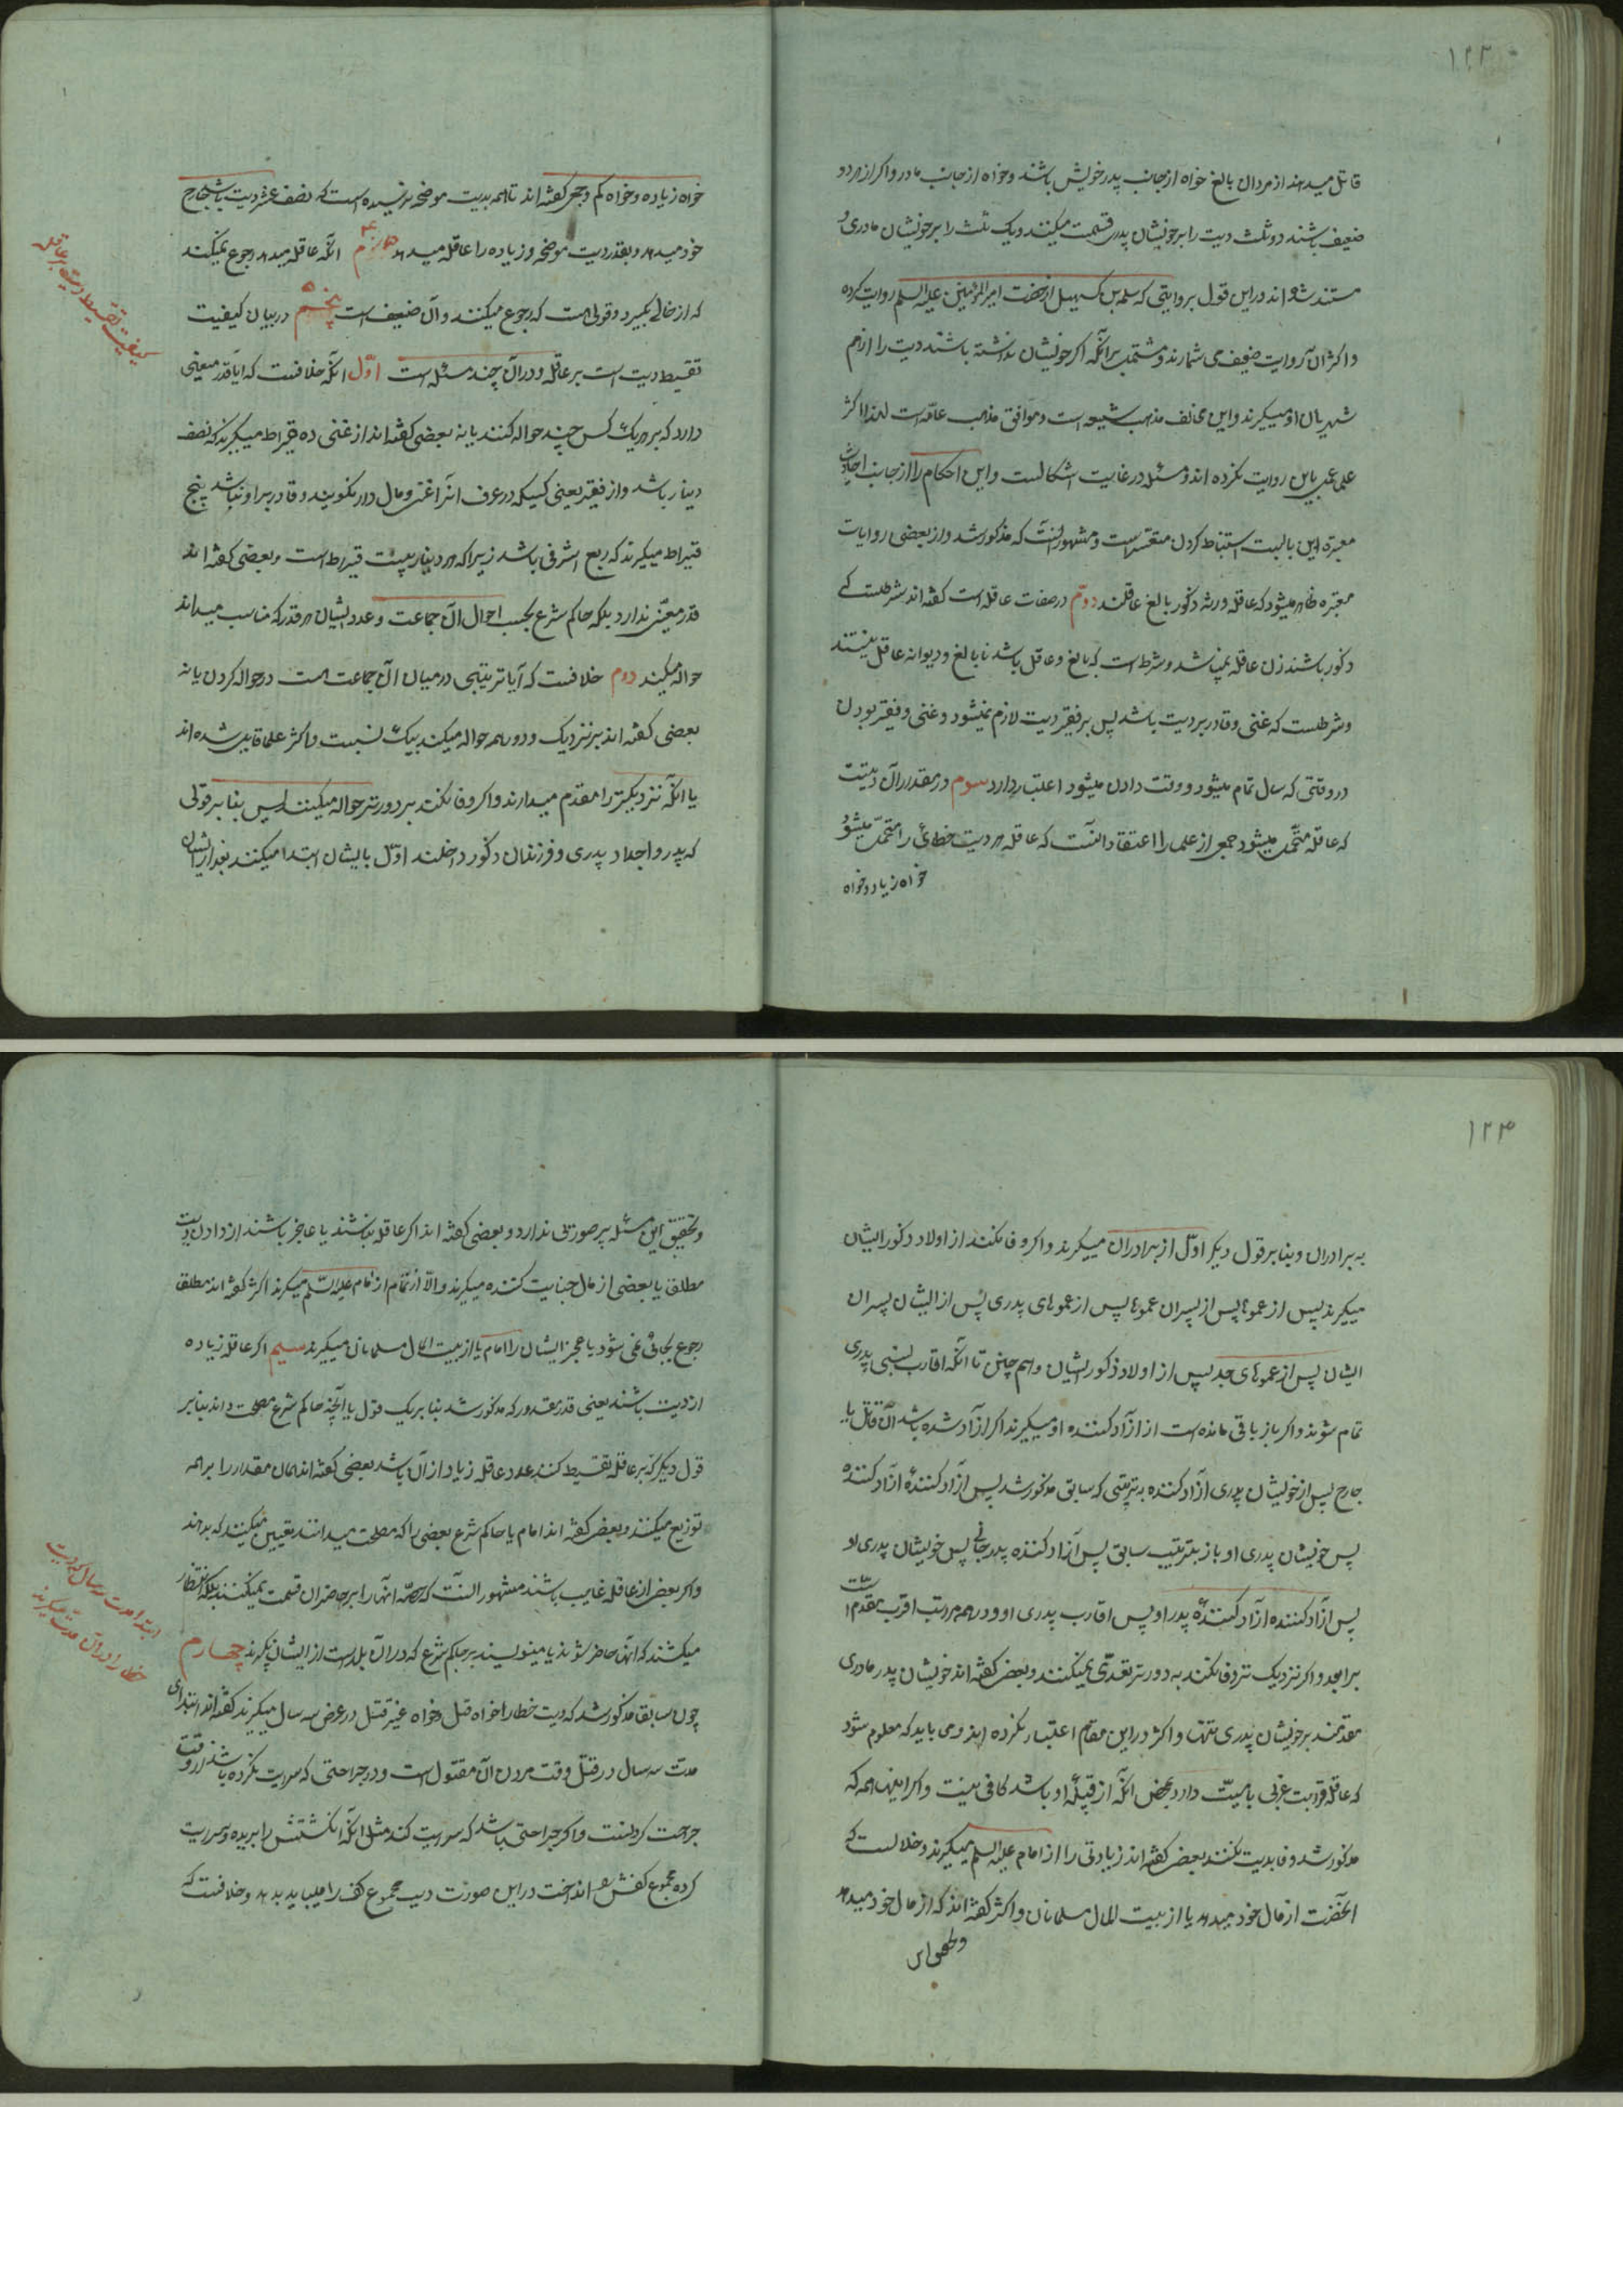 ۱۲۳
قاتل میدهند از مردان بالغ خواه از جانب پدر خویش باشند و خواه از جانب مادر و اگر از هر دو
ضعیف باشند دو ثلث دیت را بر خویشان پدری قسمت میکنند و یک ثلث را بر خویشان مادری و
مستند شده اند در این قول بروایتی که سلمه بن کهیل از حضرت امیرالمؤمنین علیه السلم روایت کرده
و اکثر آن روایت ضعیف می شمارند و مشتمل بر آنکه اگر خویشان نداشته باشند دیت را از هم
شهریان او میگیرند و این مخالف مذهب شیعه است و موافق مذهب عامه است لهذا اکثر
علما عمل باین روایت نکرده اند و مسئله در غایت اشکالست و این احکام را از جانب احادیث
معتبره این باب استنباط کردن متعسر است و مشهور آنست که مذکور شد و از بعضی روایات
معتبره ظاهر میشود که عاقله ورثه ذکور بالغ عاقلند دوم در صفات عاقله است گفته اند شرطست که
ذکور باشند زن عاقله نمیباشد و شرط است که بالغ و عاقل باشد نابالغ و دیوانه عاقل نیستند
و شرطست که غنی و قادر بر دیت باشد پس بر فقیر دیت لازم نمیشود و غنی و فقیر بودن
در وقتی که سال تمام میشود و وقت دادن میشود اعتبار دارد سوم در مقدار آن دیتیست
که عاقله متحمل میشود جمعی از علما را اعتقاد آنست که عاقله هر دیت خطائی را متحمل میشود
خواه زیاد و خواه
خواه زیاده و خواه کم و جمعی گفته اند تا هم بدیت موضحه نرسیده است که نصف عشر دیت باشد جارح
خود میدهد و بقدر دیت موضحه و زیاده را عاقله میدهد چهارم آنکه عاقله میدهد رجوع نمیکند
که از جانی بگیرد و قولی هست که رجوع میکنند و آن ضعیف است پنجم در بیان کیفیت
تقسیط دیت است بر عاقله و در آن چند مسئله است اول آنکه خلافست که آیا قدر معینی
دارد که بر هر یک کس چند حواله کنند یا نه بعضی گفته اند از غنی ده قیراط میگیرند که نصف
دینار باشد و از فقیر یعنی کسیکه در عرف او را غنی و مال دار نگویند و قادر بر او نباشد پنج
قیراط میگیرند که ربع اشرفی باشد زیرا که هر دینار بیست قیراط است و بعضی گفته اند
قدر معینی ندارد بلکه حاکم شرع بحسب احوال آن جماعت و عدد ایشان هر قدر که مناسب میداند
حواله میکند دوم خلافست که آیا ترتیبی در میان آن جماعت هست در حواله کردن یا نه
بعضی گفته اند بر نزدیک و دور همه حواله میکند بیک نسبت و اکثر علما قایل شده اند
یا آنکه نزدیکتر را مقدم میدارند و اگر وفا نکند بر دورتر حواله میکنند پس بنا بر قولی
که پدر و اجداد پدری و فرزندان ذکور داخلند اول بایشان ابتدا میکنند بعد از ایشان
کیفیت تقسیط دیت بر عاقله
۱۲۴
به برادران و بنابر قول دیگر اول از برادران میگیرند و اگر وفا نکنند از اولاد ذکور ایشان
میگیرند پس از عموها پس از پسران عموها پس از عموهای پدری پس از ایشان پسران
ایشان پس از عموهای جد پس از اولاد ذکور ایشان و هم چنین تا آنکه اقارب نسبی پدری
تمام شوند و اگر باز باقی مانده است از آزاد کننده او میگیرند اگر آزاد شده باشد آن قاتل یا
جارح پس از خویشان پدری آزاد کننده به ترتیبی که سابق مذکور شد پس آزاد کننده آزاد کننده
پس خویشان پدری او باز بترتیب سابق پس آزاد کننده پدر جانی پس خویشان پدری او
پس آزاد کننده آزاد کننده پدر او پس اقارب پدری او و در همه مراتب اقرب مقدم است
بر ابعد و اگر نزدیک تر وفا نکند به دورتر تعدی میکنند و بعضی گفته اند خویشان پدر مادری
مقدمند بر خویشان پدری تنها و اکثر در این مقام اعتبار نکرده اند و می باید که معلوم شود
که عاقله قرابت عرفی بامیت دارد بمحض آنکه از قبیله او باشد کافی نیست و اگر اینها همه که
مذکور شد وفا بدیت نکنند بعضی گفته اند زیادتی را از امام علیه السلم میگیرند و خلافست که
آنحضرت از مال خود میدهد یا از بیت المال مسلمانان و اکثر گفته اند که از مال خود میدهد
و تحقیق این
و تحقیق این مسئله پر صورتی ندارد و بعضی گفته اند اگر عاقله نباشند یا عاجز باشند از دادن دیت
مطلقا یا بعضی از مال جنایت کننده میگیرند و الا از تمام از امام علیه السلم میگیرند اکثر گفته اند مطلقا
رجوع بجانی نمی شود با عجز ایشان را امام یا از بیت المال مسلمانان میگیرند سیم اگر عاقله زیاده
از دیت باشند یعنی قدر مقدور که مذکور شد بنابر یک قول یا آنچه حاکم شرع مصلحت داند بنابر
قول دیگر که بر عاقله تقسیط کنند عدد عاقله زیاد از آن باشد بعضی گفته اند همان مقدار را بر همه
توزیع میکنند و بعضی گفته اند امام یا حاکم شرع بعضی را که مصلحت میدانند تعیین میکنند که بدهند
و اگر بعضی از عاقله غایب باشند مشهور آنست که حصه آنها را بر حاضران قسمت نمیکنند بلکه انتظار
میکشند که آنها حاضر شوند یا مینویسند بر حاکم شرع که در آن بلد است از ایشان بگیرند چهارم
چون سابقا مذکور شد که دیت خطا را خواه قتل و خواه غیر قتل در عرض سه سال میگیرند گفته اند ابتدای
مدت سه سال در قتل وقت مردن آن مقتول است و در جراحتی که سرایت نکرده باشد از وقت
جراحت کردنست و اگر جراحتی باشد که سرایت کند مثل آنکه انگشتش را بریده و سرایت
کرده مجموع کفش انداخت در این صورت دیت مجموع کف را میباید بدهد و خلافست که
ابتداء مدت سه سال که دیت
خطا را در آن مدت میگیرند